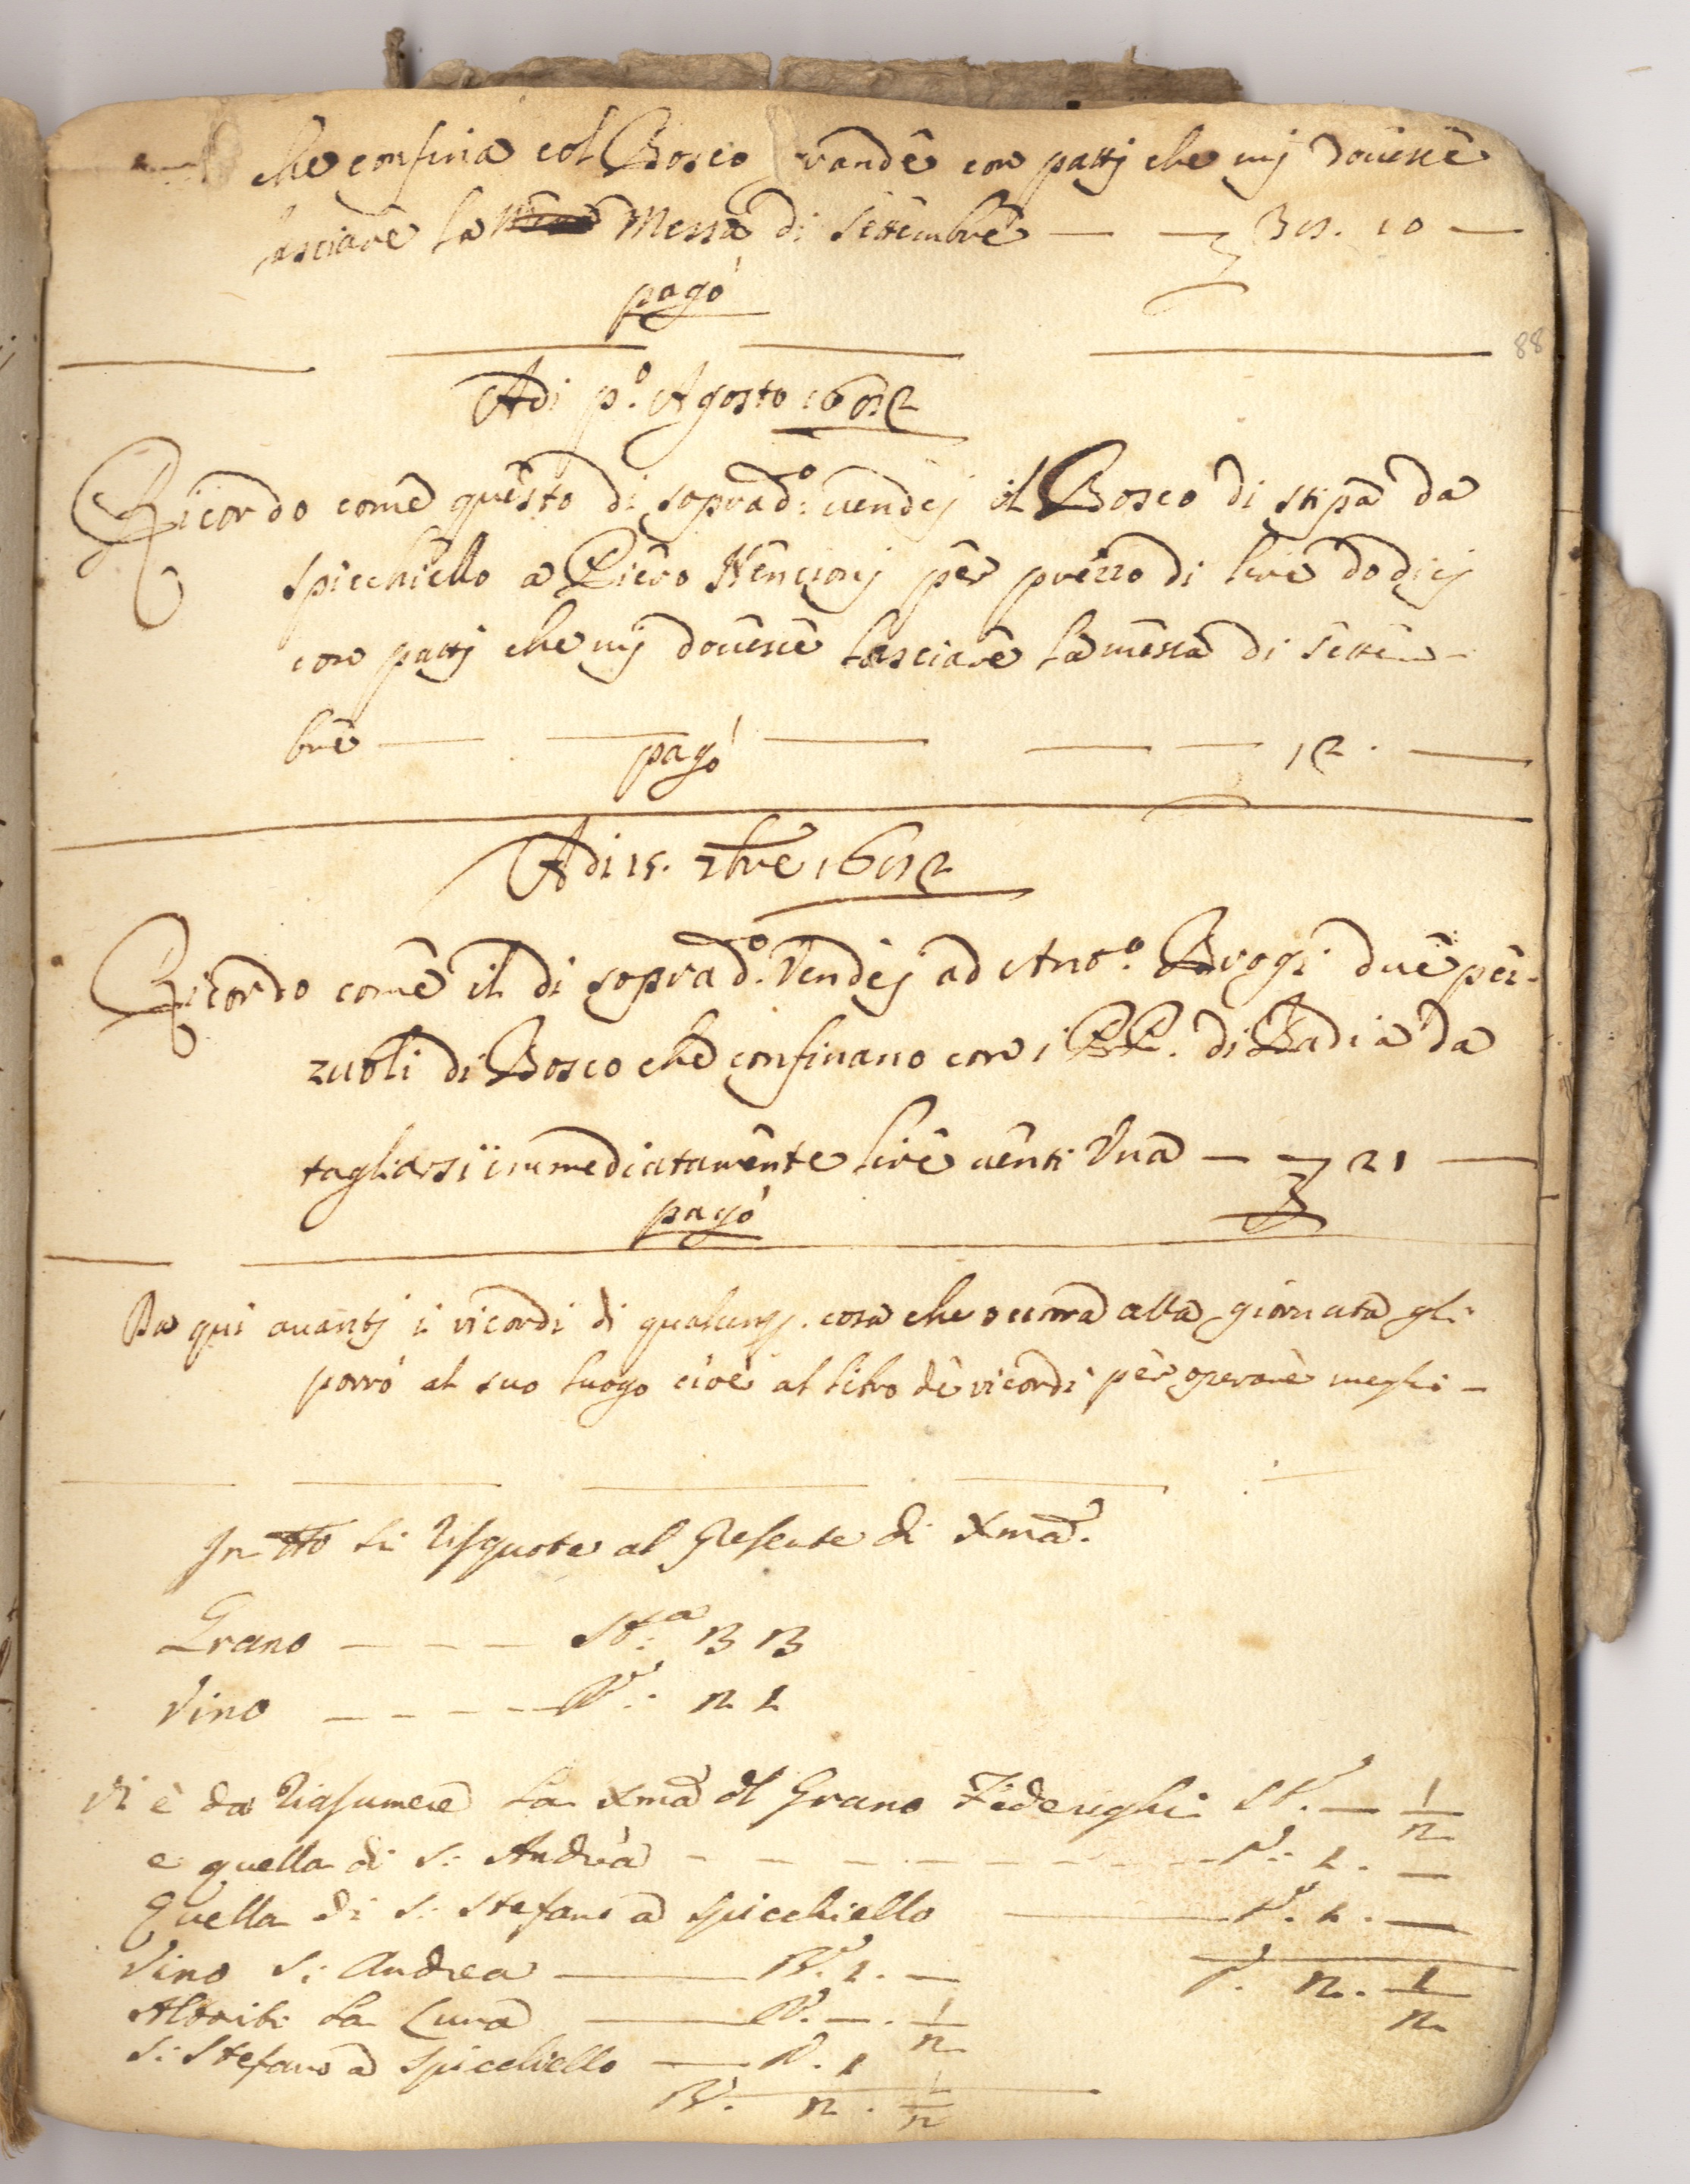 che confina col Bosco Grande con pattj che mj dovesse
lasciare la Messa di settembre — — 35. 10 —
pagò
88
Adi p.º Agosto 1652
Ricordo come questo di soprad.º vendej il Bosco di stipa da
spicchiello a Piero Nencionj per prezzo di lire dodicj
con pattj che mj dovesse lasciare la messa di settem-
bre — — pagò — — — 12. —
Adi 15. 7bre 1652
Ricordo come il di soprad.º Vendej ad Anto.º Brogi due pez-
zuoli di Bosco che confinano con i PP. di Badia da
tagliarsi immediatamente lire venti Una — — 21 —
pagò
Da qui avantj i ricordi di qualunq. cosa che occorra alla giornata gli
porrò al suo luogo cioè al libro de ricordi per operare meglio —
In tto si risquote al Presente di Xma.
Grano — — — St.ª 13 13
Vino — — — — B: 21
Vi è da riassumere la Xma del Grano Federighi St. — 1/2
e quella di S: Andrea — — — — — — — — St: 1. —
Quella di S: Stefano a Spicchiello — St. 1. —
Vino S: Andrea — B. 1. —
St. 2. 1/2
Altoviti la Cura — B. —. 1/2
S: Stefano a Spicchiello — B. 1
B. 2. 1/2